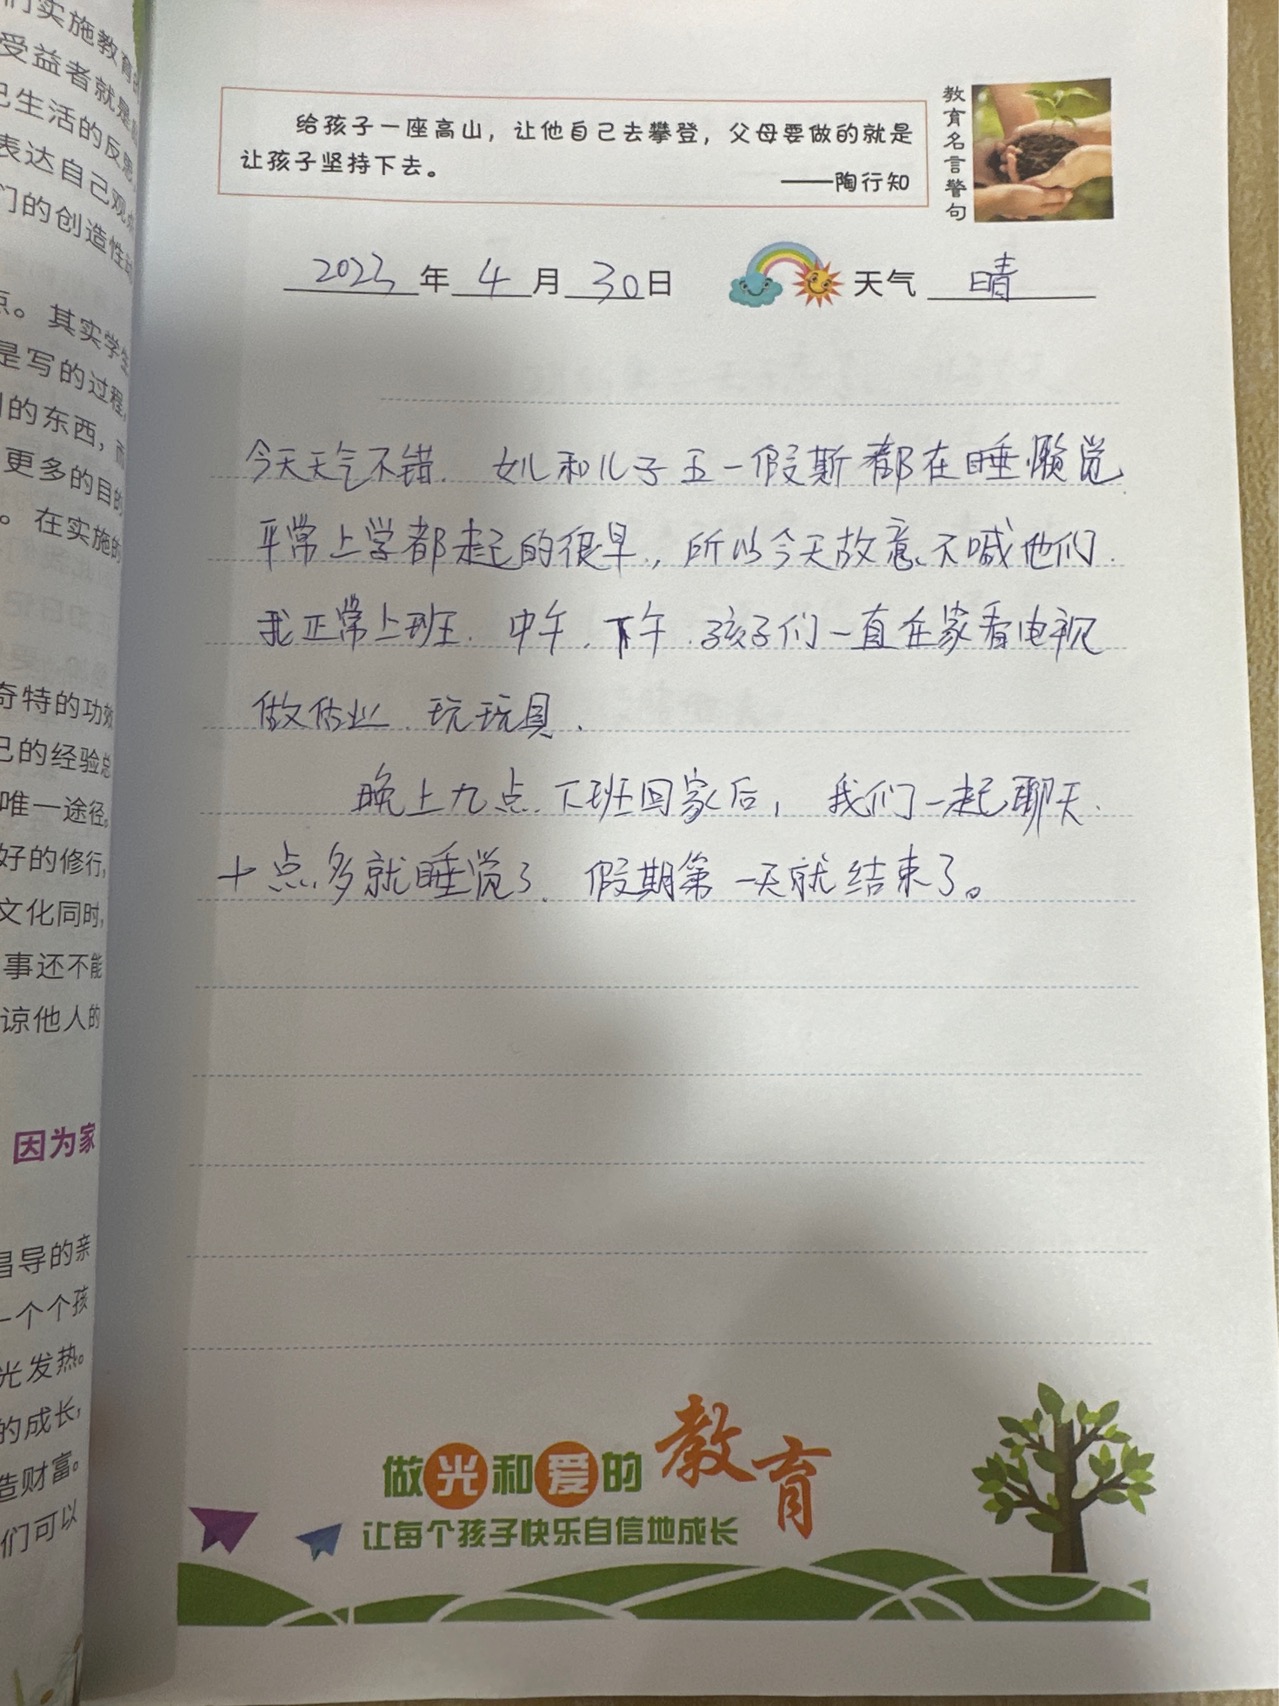 们实施教育的
受益者就是
己生活的反思
表达自己观点
们的创造性
点。其实学生
是写的过程,
的东西,而
更多的目的
。在实施的
奇特的功效
己的经验总
唯一途径。
好的修行,
文化同时,
事还不能
谅他人的
因为家
倡导的亲
一个个孩
光发热。
的成长,
造财富。
们可以
给孩子一座高山，让他自己去攀登，父母要做的就是
让孩子坚持下去。
——陶行知
教育名言警句
2023年4月30日 天气 晴
今天天气不错. 女儿和儿子五一假斯都在睡懒觉
平常上学都起的很早., 所以今天故意不喊他们.
我正常上班. 中午. 下午. 孩子们一直在家看电视
做作业. 玩玩具.
晚上九点. 下班回家后, 我们一起聊天.
十点多就睡觉了. 假期第一天就结束了。
做光和爱的教育
让每个孩子快乐自信地成长